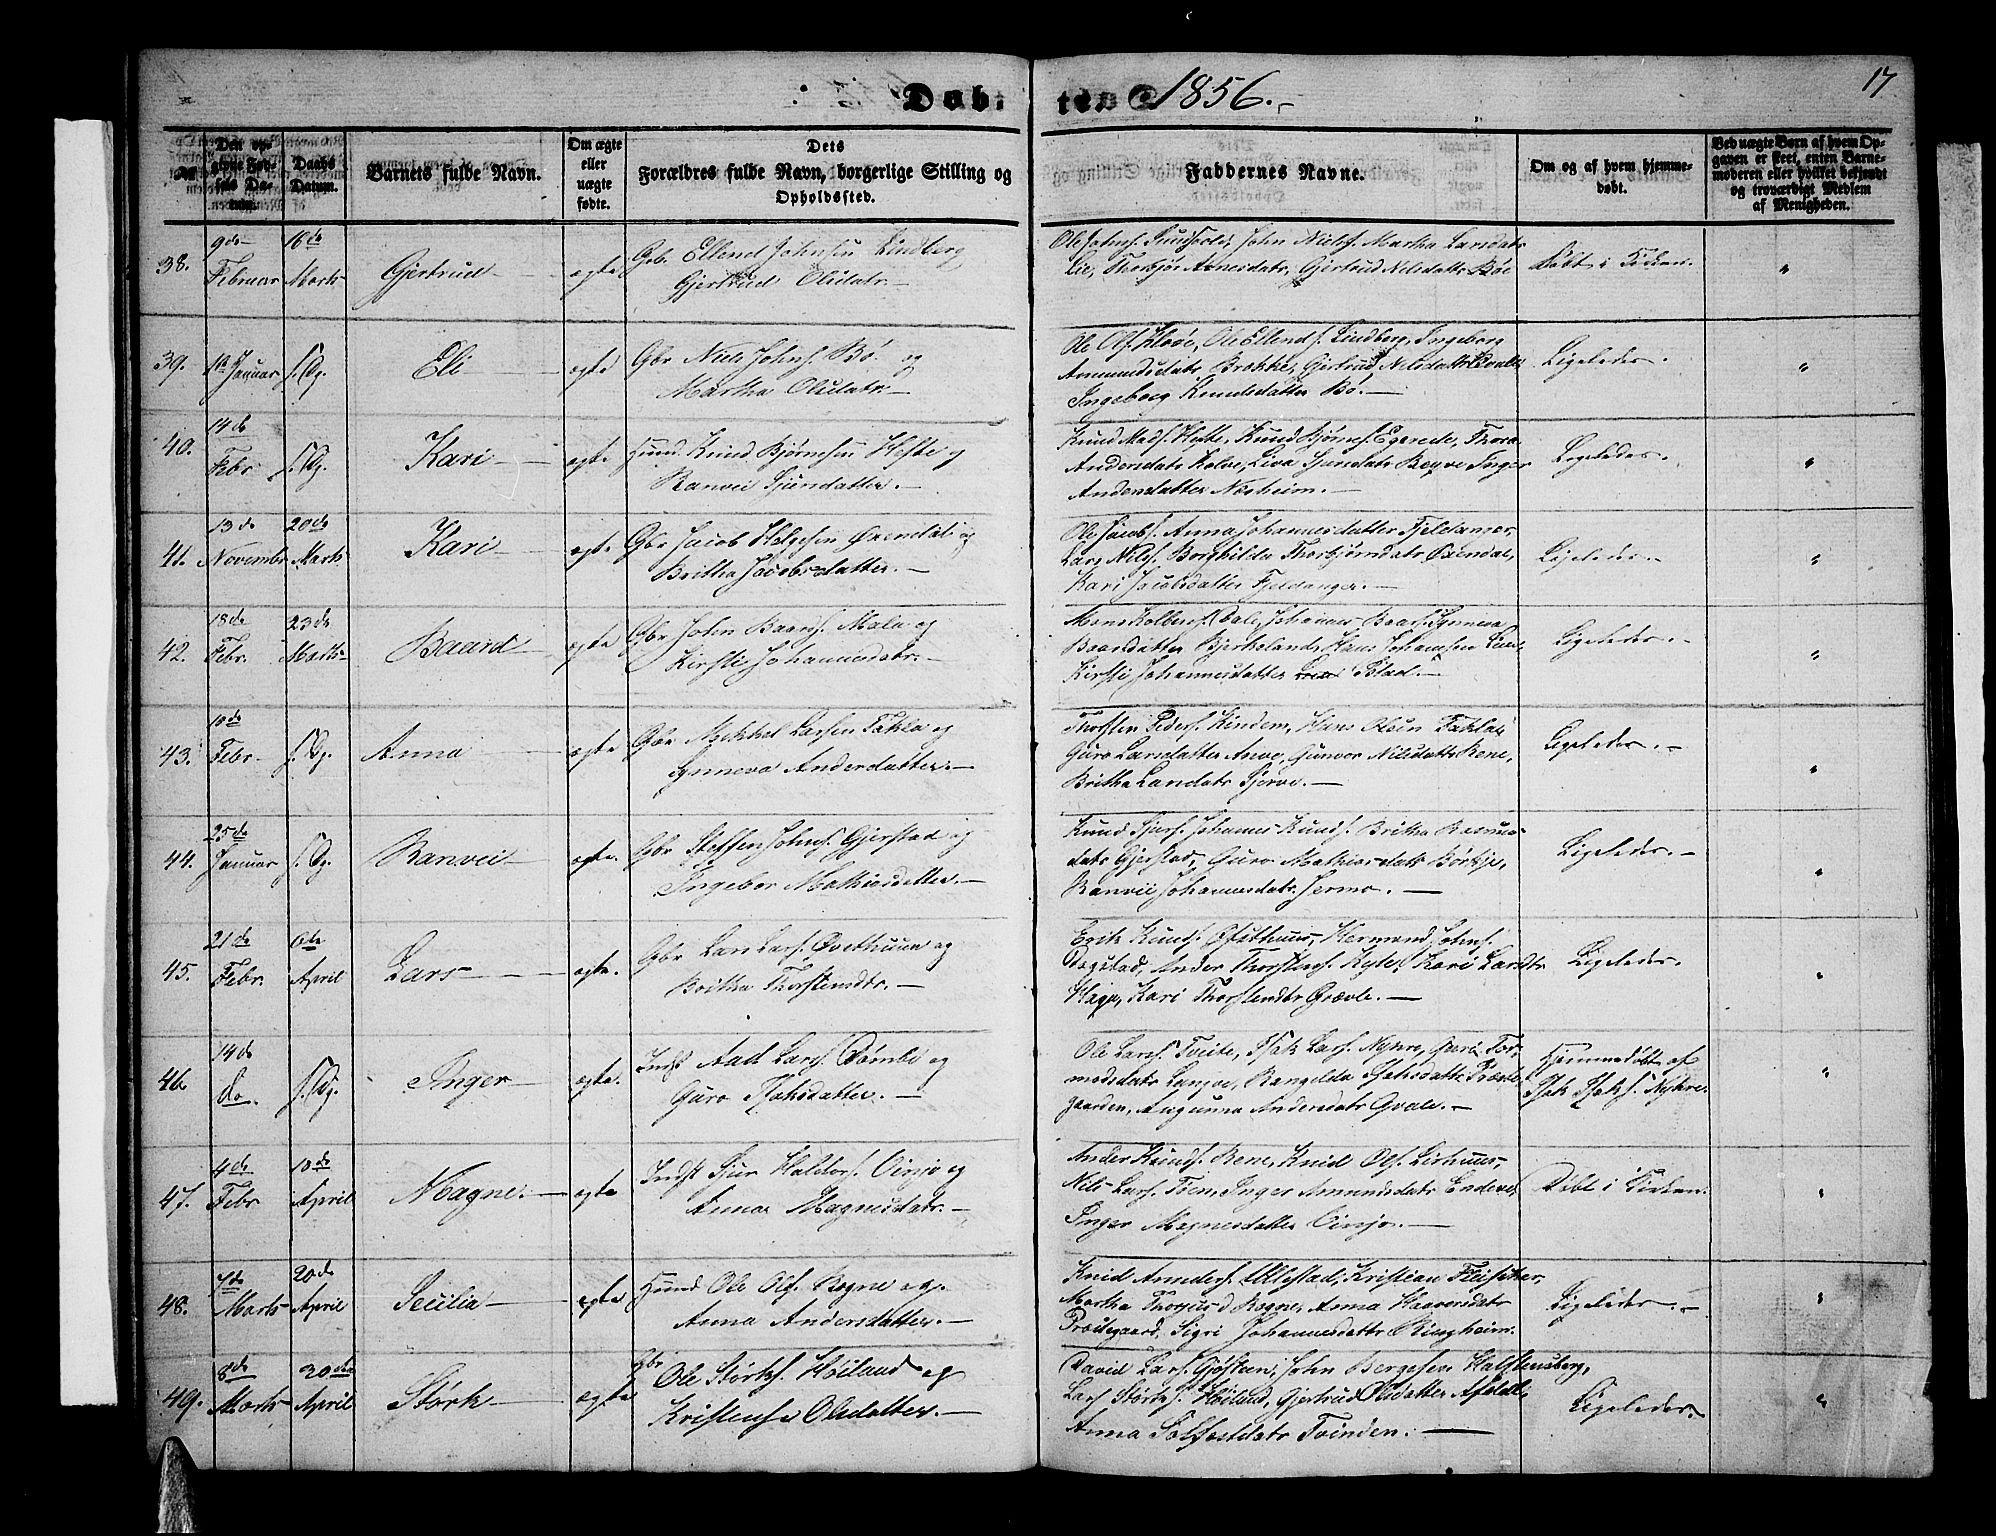 Døb-
te
1856.
17
Den op-
givne Fød-
sels Da-
tum.
Daabs
Datum.
Barnets fulde Navn.
Om ægte
eller
uægte
fødte.
Dets
Forældres fulde Navn, borgerlige Stilling og
Opholdssted.
Faddernes Navne.
Om og af hvem hjemme-
døbt.
Ved uægte Børn af hvem Op-
gaven er skeet, enten Barne-
moderen eller hvilket bekjendt
og troværdigt Medlem
af Menigheden.
38.
9de
Februar
16de
Marts
Gjertrud
ægte
Gbr. Ellend Johnsen Lindberg
Gjertrud Olsdatr.
John Nielss. Martha Larsdatr
Lie, Gjertrud Nielsdattr Bøe
Døbt i Kirken.
39.
Januar
s. Dg.
Eli
ægte
Gbr Niels Johns. Bø og
Martha Olsdatr
Ole Ols. Kløve, Ole Ellends. Lindberg, Ingeborg
Amundsdatr Brekke, Gjertrud Nielsdattr
Ingeborg Knudsdatter Bø.
Ligeledes.
40.
14de
Febr
s. Dg.
Kari
ægte
Huusm. Knud Bjørnsen Hefte og
Ranvei Sjursdatter.
Knud Mads. Hefte, Knud Bjørns. Egerede, Thora
Andersdatr Kolve, Liva Sjursdatr Inger
Andersdatter Nesheim.
Ligeledes.
41.
13de
Novembr
20de
Marts
Kari
ægte
Gbr Jacob Helgesen Øxendal og
Britha Jacobsdatter.
Ole Jacobs. Anna Johannesdatter Fjeldanger,
Lars Niels. Borghilda Thorbjørnsdatr Øxendal,
Kari Jacobsdatter Fjeldanger.
Ligeledes.
42.
18de
Febr.
23de
Marts
Baard
ægte
Gbr John Baards. Mala og
Kirsti Johannesdatr.
Mons Kolbens. Dale, Johannes Synneva
Baarsdatter Bjerkeland, Hans Johansen
Kirsti Johannesdatter Istad.
Ligeledes.
43.
10de
Febr
s. Dg.
Anna
ægte
Gbr Mekkel Larsen Takla og
Synneva Andersdatter.
Thorsten Peders. Kindem, Hans Olsen Takla,
Guro Larsdatter Gunvor Nilsdattr Rene,
Britha Larsdatr Gjerve.
Ligeledes.
44.
25de
Januar
s. Dg.
Ranvei
ægte.
Gbr Steffen Johns. Gjerstad og
Ingebor Mathiasdatter.
Knud Sjurs. Johannes Knuds. Britha Rasmus-
datr Gjerstad, Guro Mathiasdatr Børkje,
Ranvei Johannesdatr.
Ligeledes.
45.
21de
Febr.
6de
April
Lars
ægte.
Gbr Lars Lars. Øvsthuus og
Britha Thorstensdtr.
Erik Knuds. Øfsthuus, Hermand Johns.
Dagstad, Ander Thorstens. Kyte, Kari Larsdtr
Haga, Kari Thorstensdtr Grævle.
Ligeledes.
46.
14de
do.
s. Dg.
Inger
ægte.
Indst Aad Lars. Dømbe og
Guro Isaksdatter.
Ole Lars. Tveite, Isak Lars. Nykre, Guri Tor-
modsdatr Rangelda Isaksdatter Præste-
gaarden, Angunna Andersdatr Gvale.
Hjemmedøbt af
Isak Isaks. Nykre.
47.
4de
Febr
10de
April
Magne.
ægte
Indst Sjur Haldors. Vinjo og
Anna Magnesdatr.
Ander Knuds. Rene, Knud Ols. Lirhuus,
Nils Lars. Tøen, Inger Amundsdatr Endeve,
Inger Magnesdatter Vinjo.
Døbt i Kirken.
48.
7de
Marts
20de
April
Secilia
ægte
Huusm Ole Ols. Rogne og
Anna Andersdatter.
Knud Anders. Ullestad, Kristian Fleischer,
Martha Rogne, Anna Haavarsdatr
Præstegaard, Sigri Johannesdattr Ringheim.
Ligeledes.
49.
8de
Marts
20de
April
Størk
ægte
Gbr
Ole Størks. Høiland og
Kristense Olsdatter.
David Lars. Gjøsteen, John Bergesen Halstensberg,
Lars Størks. Høiland, Gjertrud Olsdatter Afdal,
Anna Solfestdatr Tvinden.
Ligeledes.